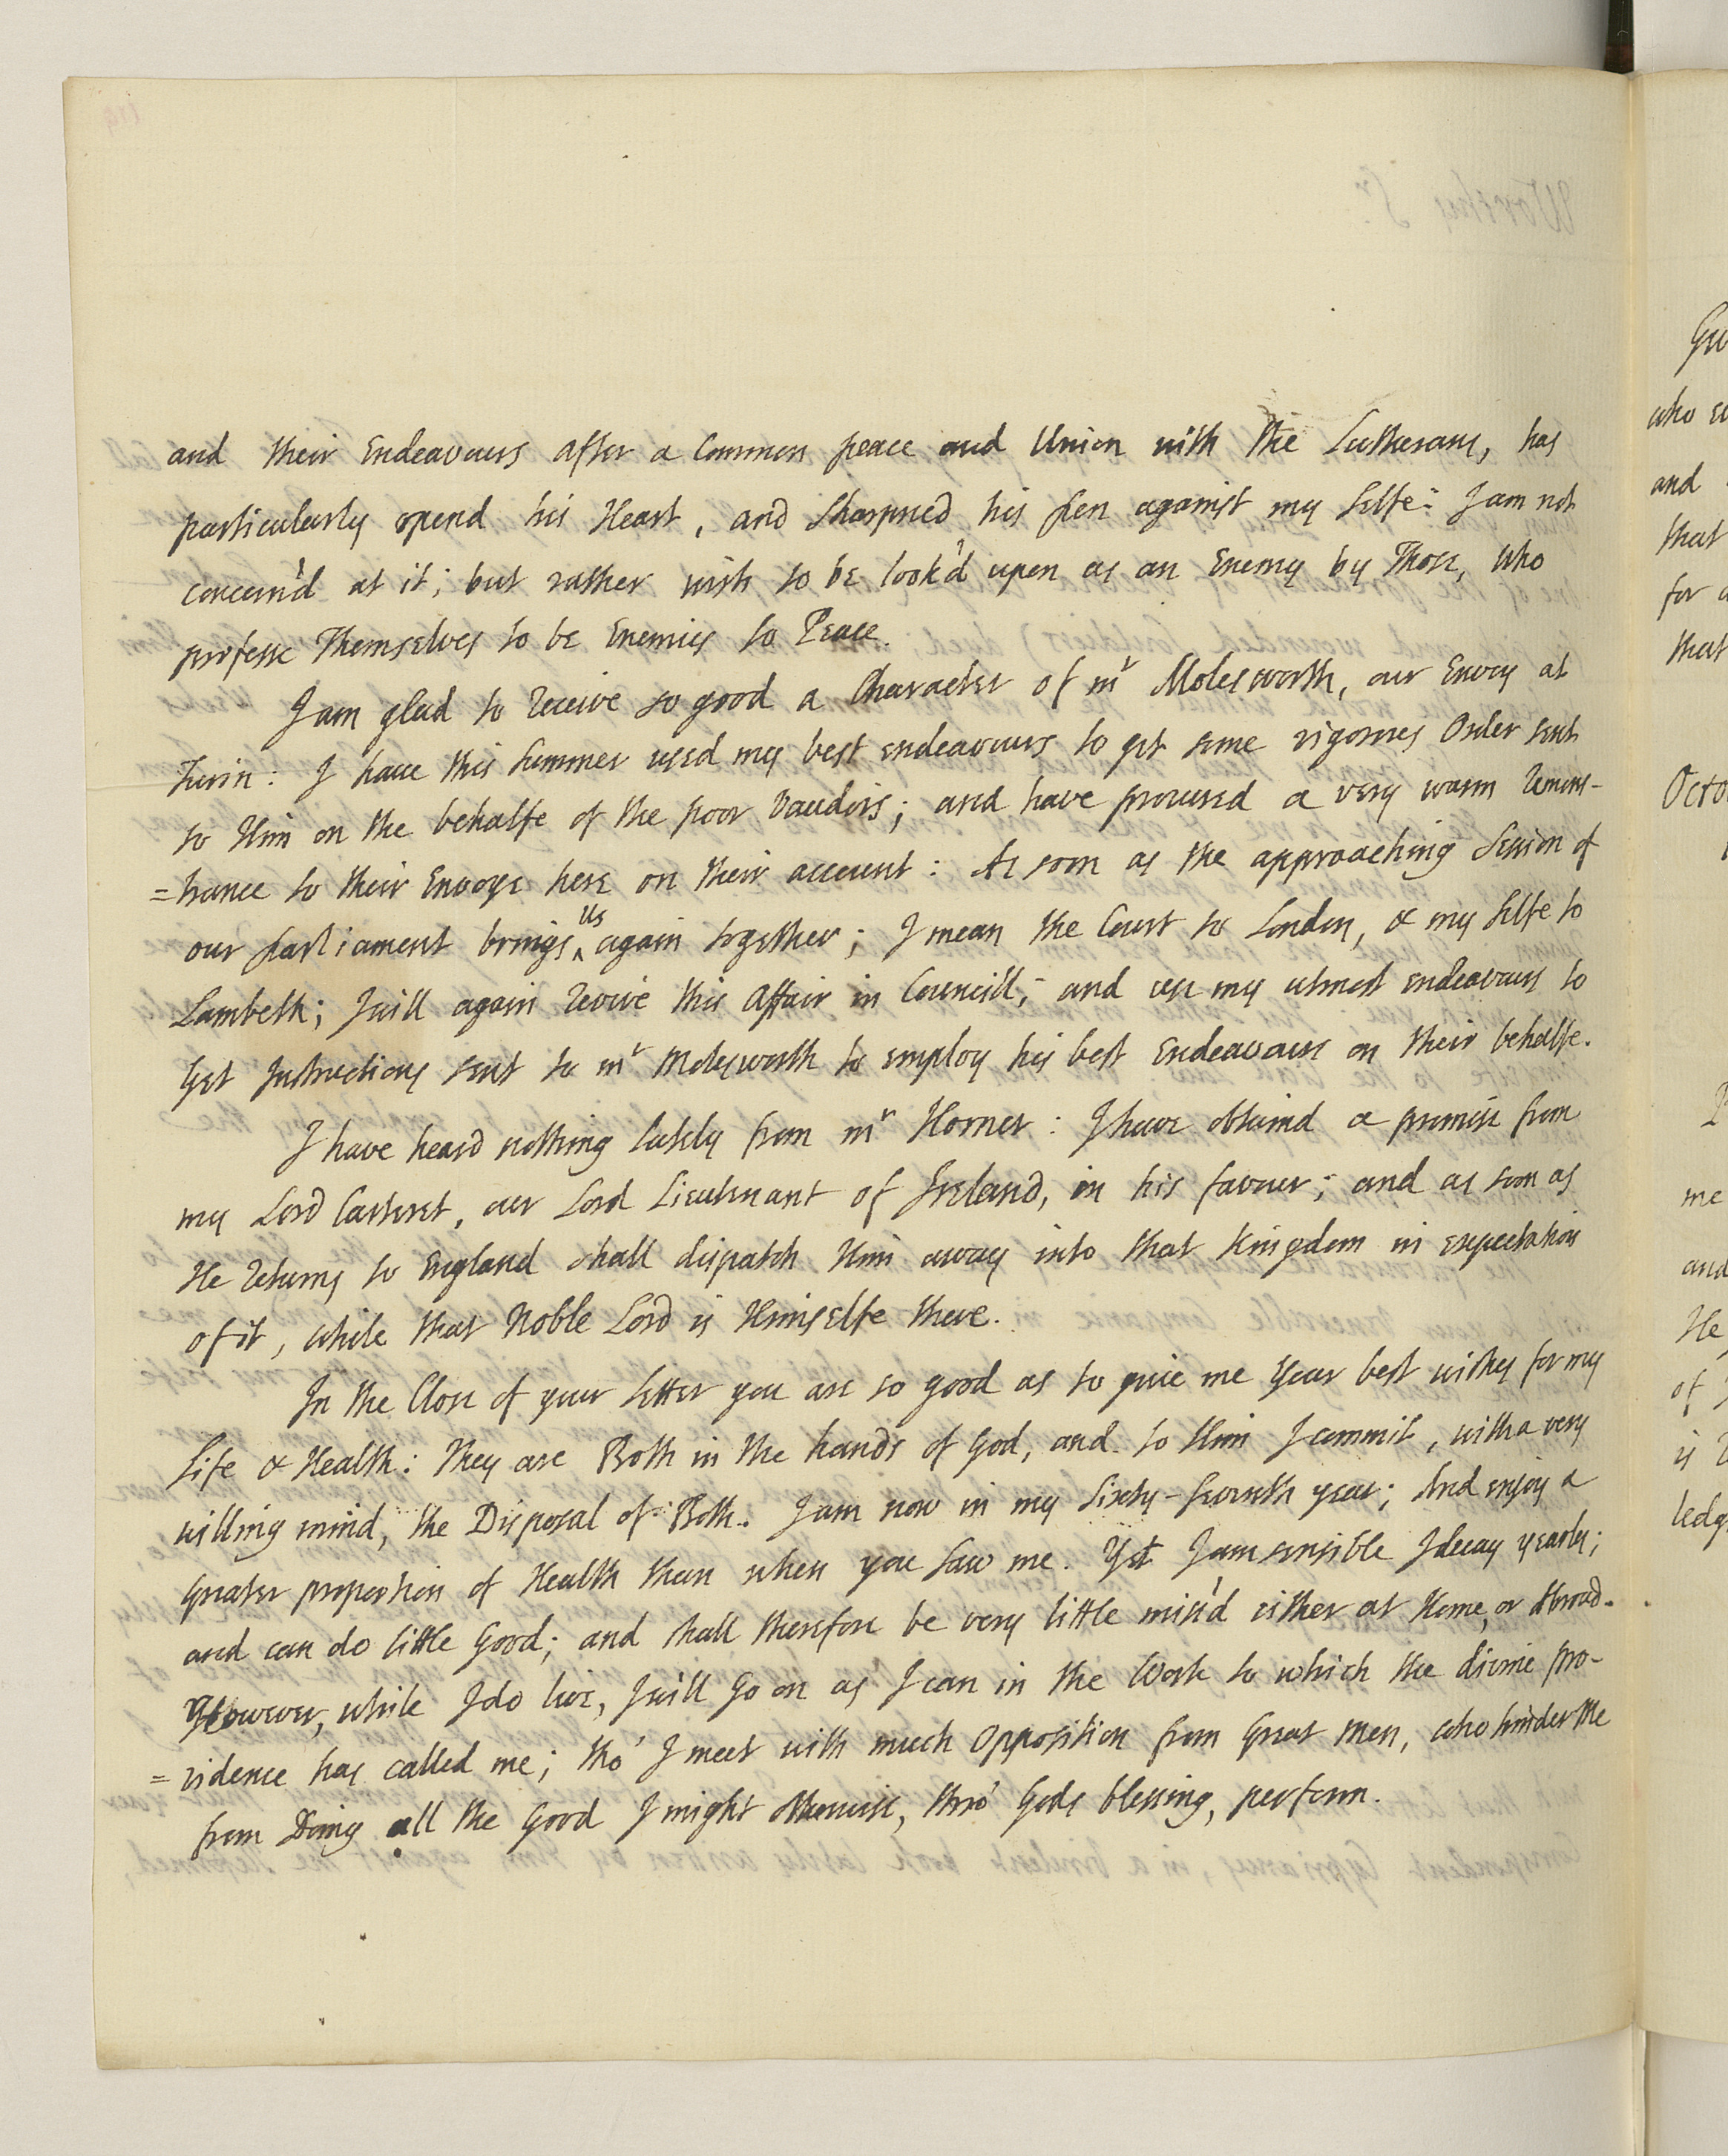 and their Endeavours after a Common peace and Union with the Lutherans, has
particularly opend his Heart, and Sharpned his pen against my Selfe: I am not
concern'd at it; but rather wish to be look'd upon as an Enemy by Those, who
professe Themselves to be Enemies to Peace.
I am glad to receive so good a Character of mr Molesworth, our Envoy at
Turin: I have this Summer used my best endeavours to get some vigorous Order sent
to Him on the behalfe of the poor Vaudois; and have procured a very warm Remons-
=trance to their Envoye here on their account: As soon as the approaching Session of
our Parliament brings us again together; I mean the Court to London, & my Selfe to
Lambeth; I will again revive this Affair in Councill; and use my utmost endeavours to
Get Instructions sent to mr Molesworth to employ his best Endeavours on their behalfe.
I have heard nothing lately from mr Horner: I have obtaind a promise from
my Lord Carteret, our Lord Lieutenant of Ireland, in his favour; and as soon as
He returns to England shall dispatch Him away into that Kingdom in expectation
of it, while that Noble Lord is Himselfe there.
In the Close of your Letter you are so good as to give me Your best wishes for my
Life & Health: They are Both in the hands of God, and to Him I commit, with a very
willing mind, the Disposal of Both. I am now in my Sixty-Seventh year; And enjoy a
Greater proportion of Health than when you saw me. Yet I am sensible I decay yearly;
and can do little Good; and shall therefore be very little miss'd either at Home, or Abroad.
However, while I do live, I will Go on as I can in the Work to which the divine pro-
=vidence has called me; tho' I meet with much Opposition from Great Men, who hinder Me
from Doing all the Good I might otherwise, thro' Gods blessing, perform.
Gre
who
and
that
for
that
Octo
me
and
He
of
is
ledg